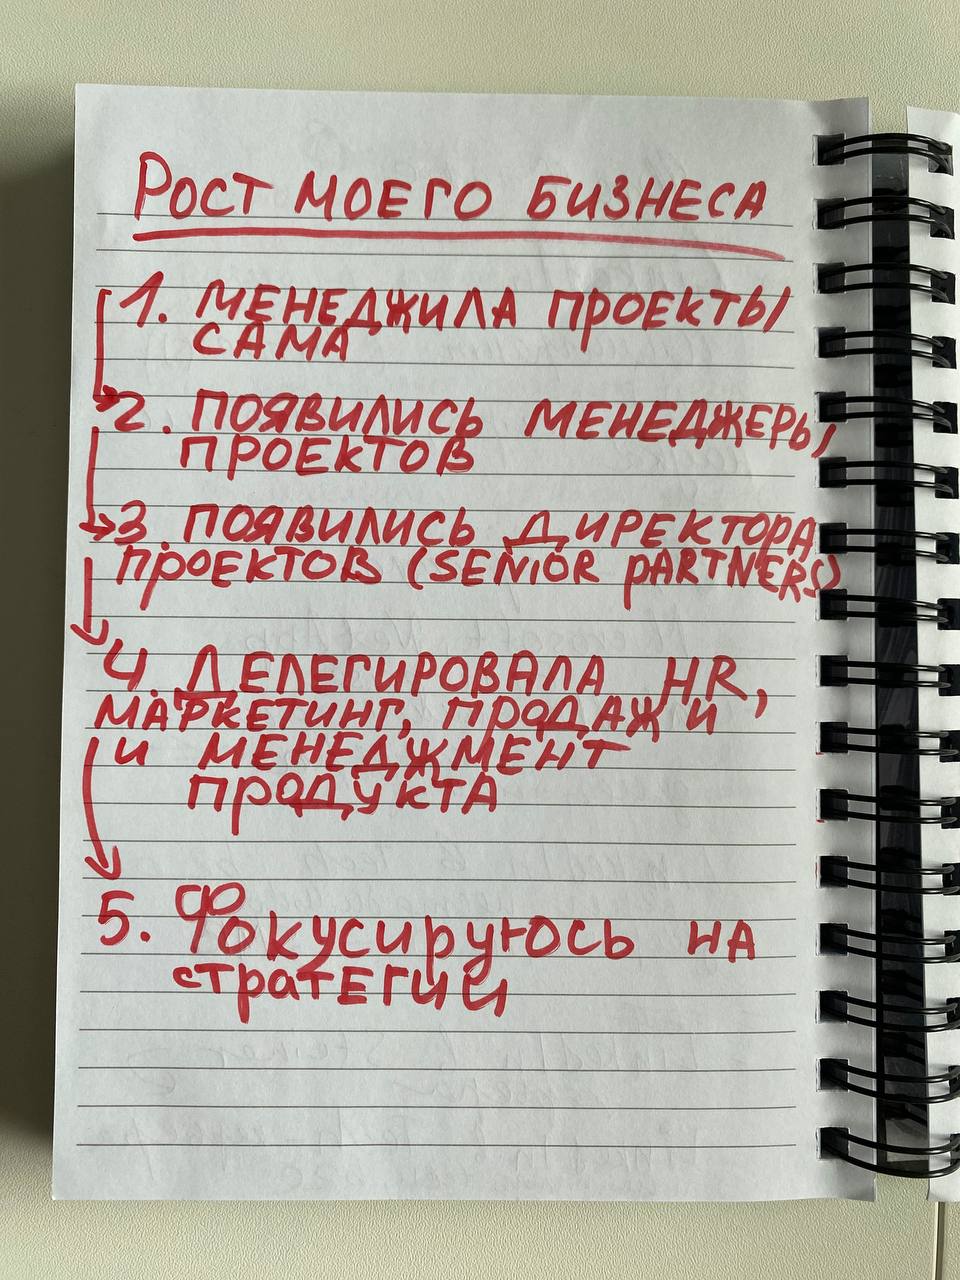 Рост моего бизнеса
1. Менеджила проекты
сама
2. Появились менеджеры
проектов
3. Появились директора
проектов (Senior partners)
4. Делегировала HR,
маркетинг, продажи
и менеджмент
продукта
5. Фокусируюсь на
стратегии